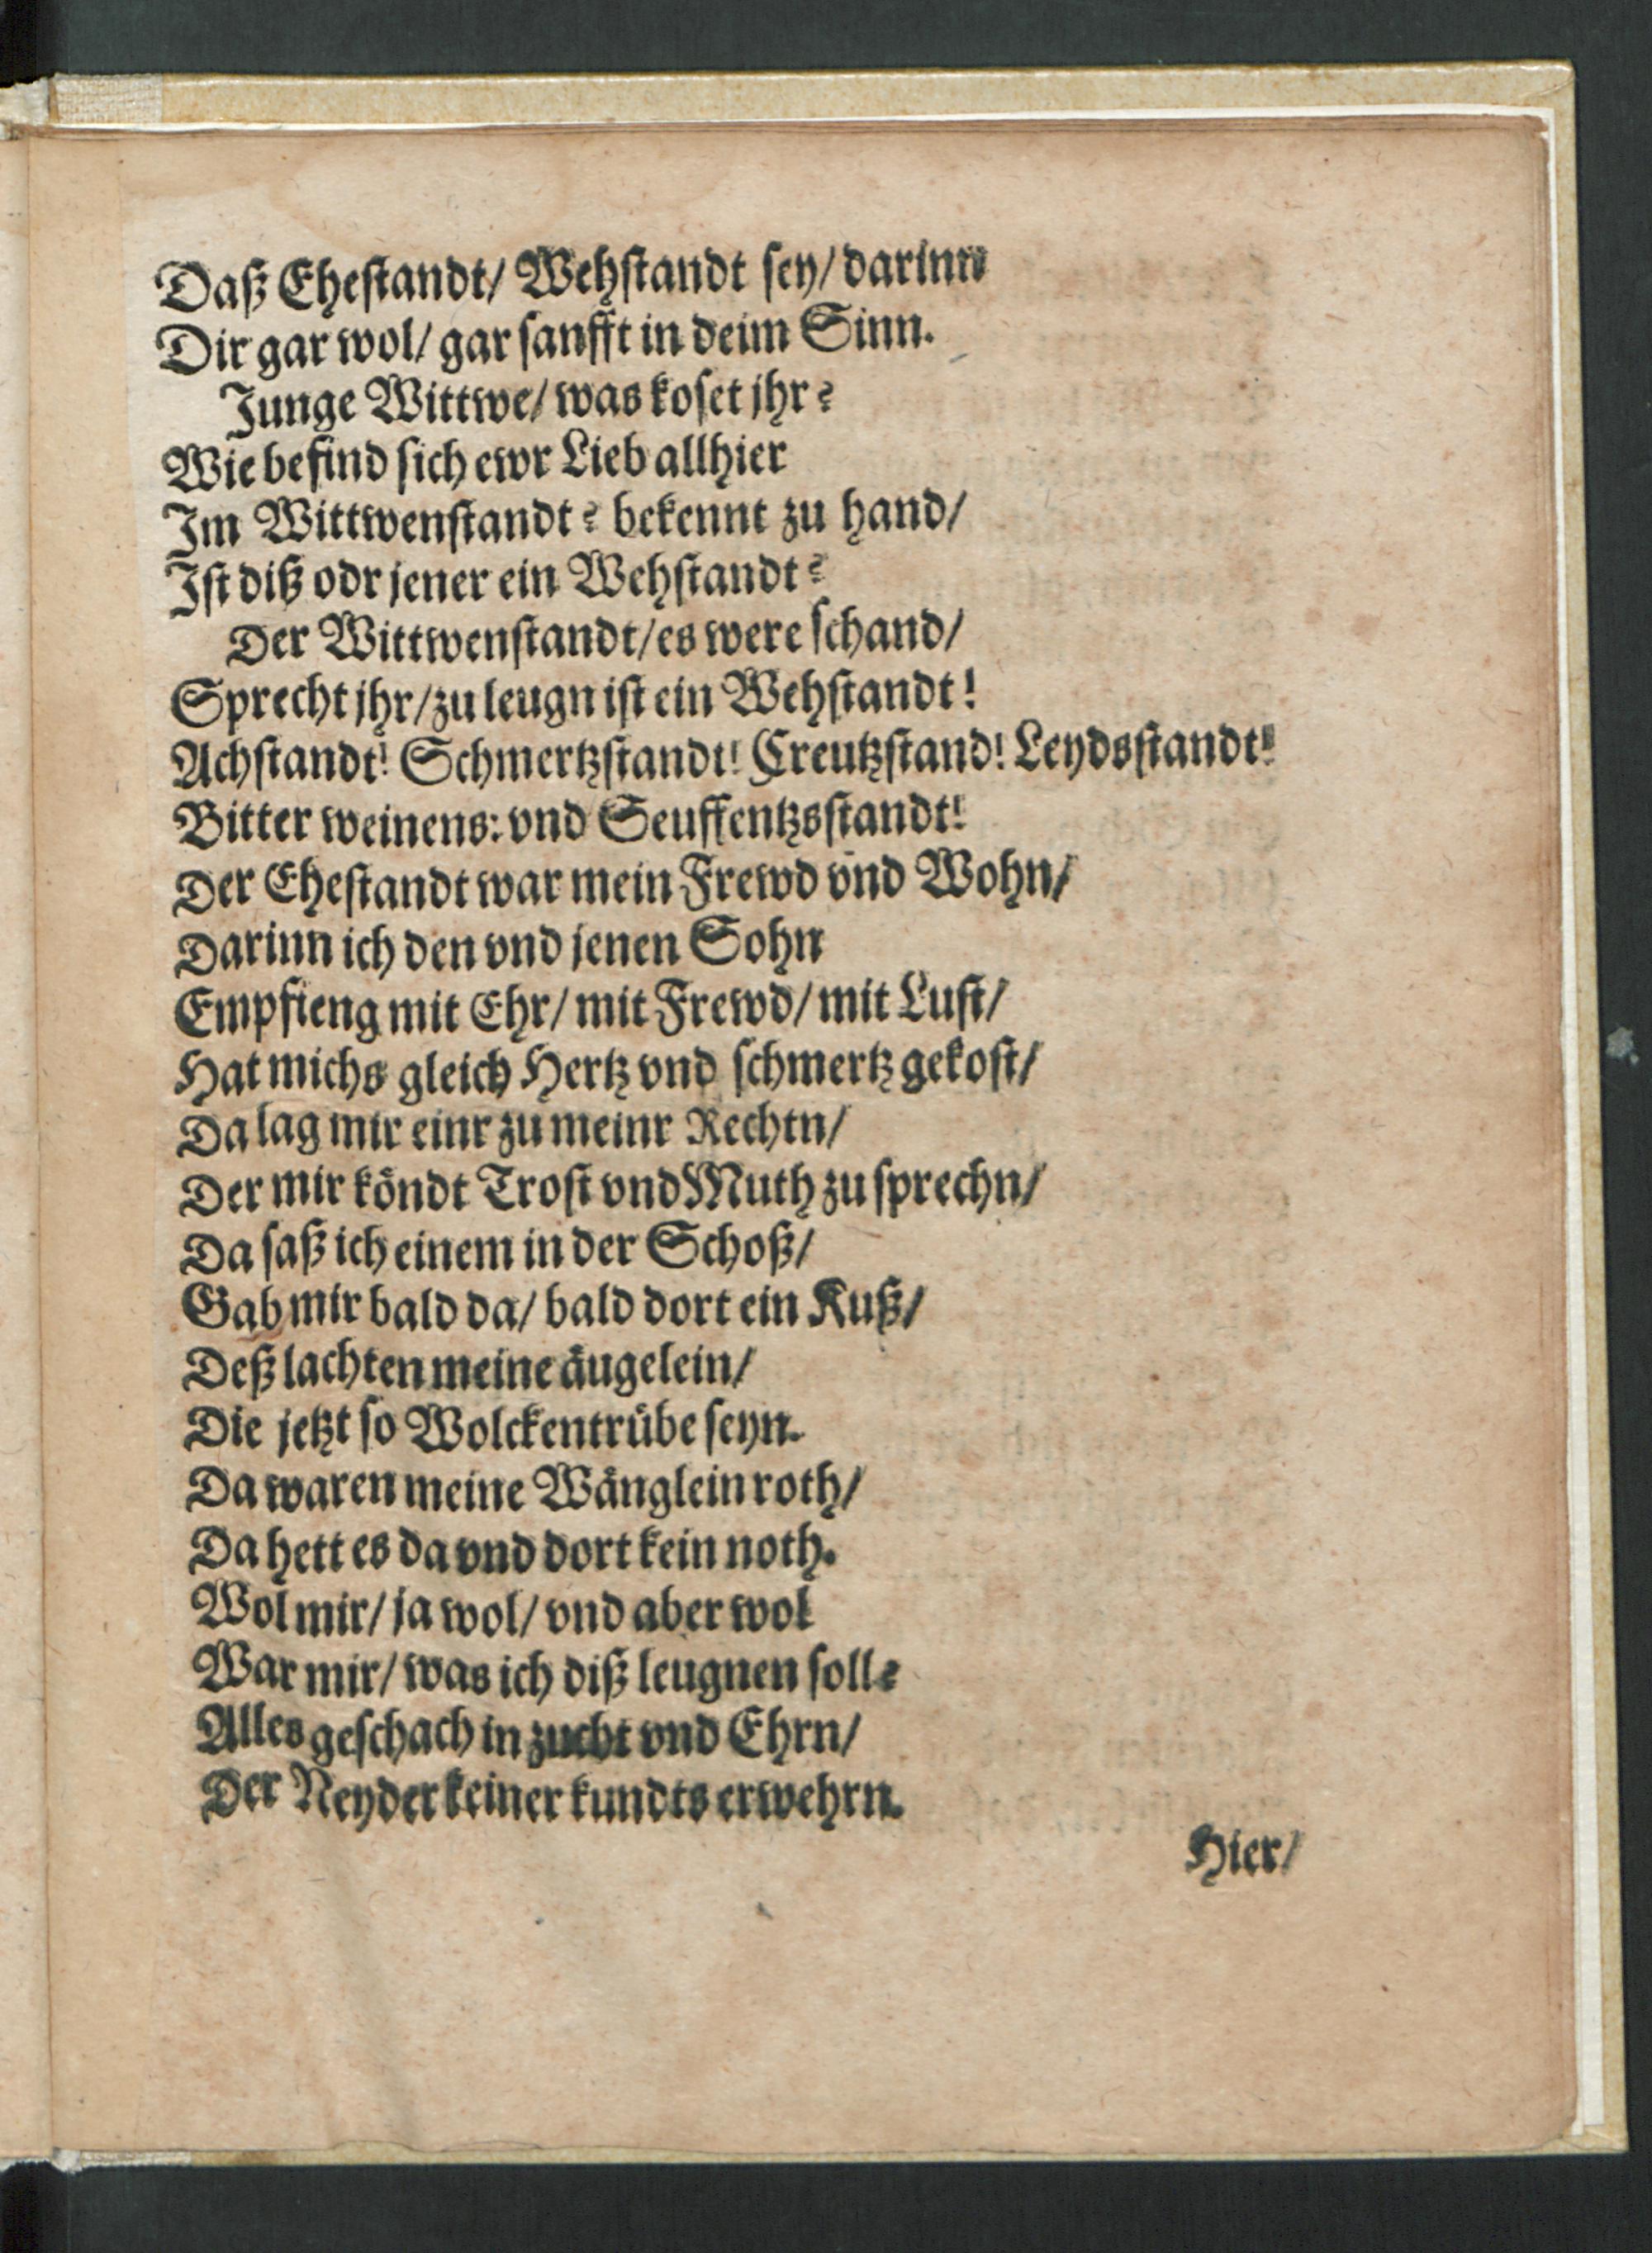 Daß Eheſtandt/ Wehſtandt ſey/ darinn
Dir gar wol/ gar ſanfft in deim Sinn.
Junge Wittwe/ was koſet jhr?
Wie befind ſich ewr Lieb allhier
Im Wittwenſtandt? bekennt zu hand/
Iſt diß odr jener ein Wehſtandt?
Der Wittwenſtandt/ es were ſchand/
Sprecht jhr/ zu leugn iſt ein Wehſtandt!
Achſtandt! Schmertzſtandt! Creutzſtand! Leydsſtandt!
Bitter weinens: vnd Seuffentzsſtandt!
Der Eheſtandt war mein Frewd vnd Wohn/
Darinn ich den vnd jenen Sohn
Empfieng mit Ehr/ mit Frewd/ mit Luſt/
Hat michs gleich Hertz vnd ſchmertz gekoſt/
Da lag mir einr zu meinr Rechtn/
Der mir köndt Troſt vnd Muth zu ſprechn/
Da ſaß ich einem in der Schoß/
Gab mir bald da/ bald dort ein Kuß/
Deß lachten meine äugelein/
Die jetzt ſo Wolckentrübe ſeyn.
Da waren meine Wänglein roth/
Da hett es da vnd dort kein noth.
Wol mir/ ja wol/ vnd aber wol
War mir/ was ich diß leugnen ſoll?
Alles geſchach in zucht vnd Ehrn/
Der Neyder keiner kundts erwehrn.
Hier/